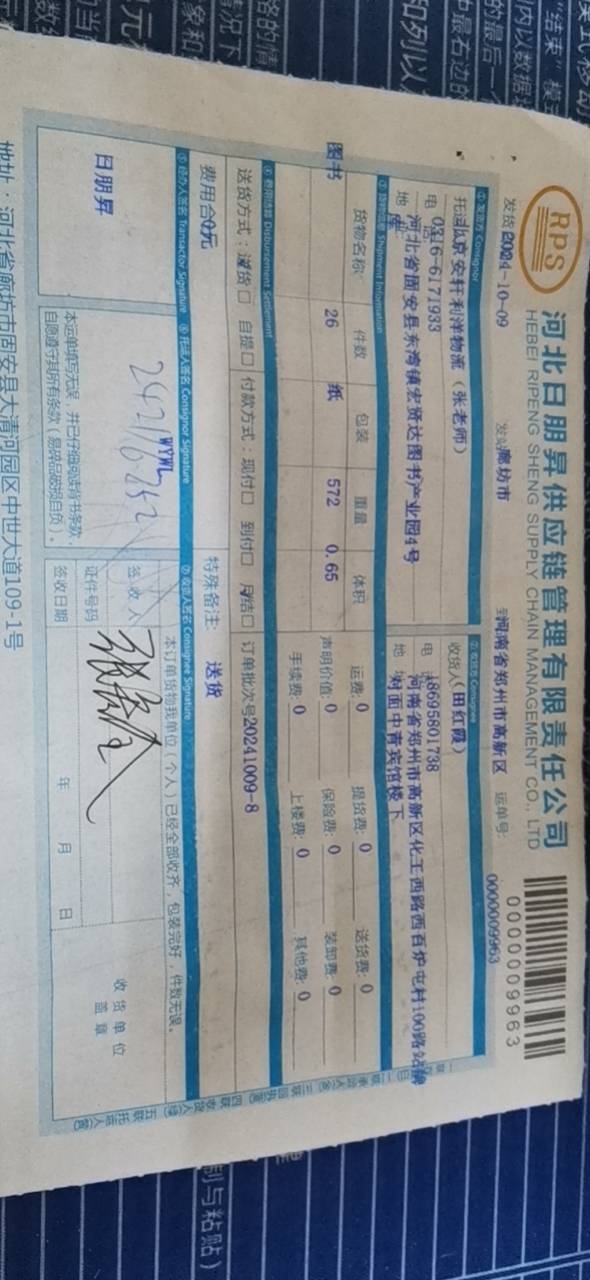 RPS
河北日朋昇供应链管理有限责任公司
HEBEI RIPENG SHENG SUPPLY CHAIN MANAGEMENT CO., LTD
0000009963
发货 2024-10-09 发站 廊坊市 至 河南省郑州市高新区 运单号: 0000009963
①发货方 Consignor
托运 北京安轩利洋物流(张老师)
电 0316-6171933
地 河北省固安县东湾镇宏贤达图书产业园4号
②收货方 Consignee
收货人(田红霞)
电 18695801738
地 河南省郑州市高新区化工西路西百炉屯村100路站牌
对面中青宾馆楼下
③货物信息 Shipment Information
货物名称: 件数 包装 重量 体积
图书 26 纸 572 0.65
运费: 0 提货费: 0 送货费: 0
声明价值: 0 保险费: 0 装卸费: 0
手续费: 0 上楼费: 0 其他费: 0
④费用结算 Disbursement Settlement
送货方式:送货□ 自提□ 付款方式:现付□ 到付□ 月结□ 订单批次号20241009-8
费用合0元 特殊备注: 送货
⑤经办人签名 Transactor Signature ⑥托运人签名 Consignor Signature ⑦收货人签名 Consignee Signature
日朋昇
WYWL
本运单填写无误,并已仔细阅读背书条款,
自愿遵守其所有条款(易碎品破损自负)。
本订单货物我单位(个人)已经全部收齐,包装完好,件数无误。
签收人
证件号码
签收日期 年 月 日
收货单位
盖章
地址:河北省廊坊市固安县大清河园区中世大道109-1号